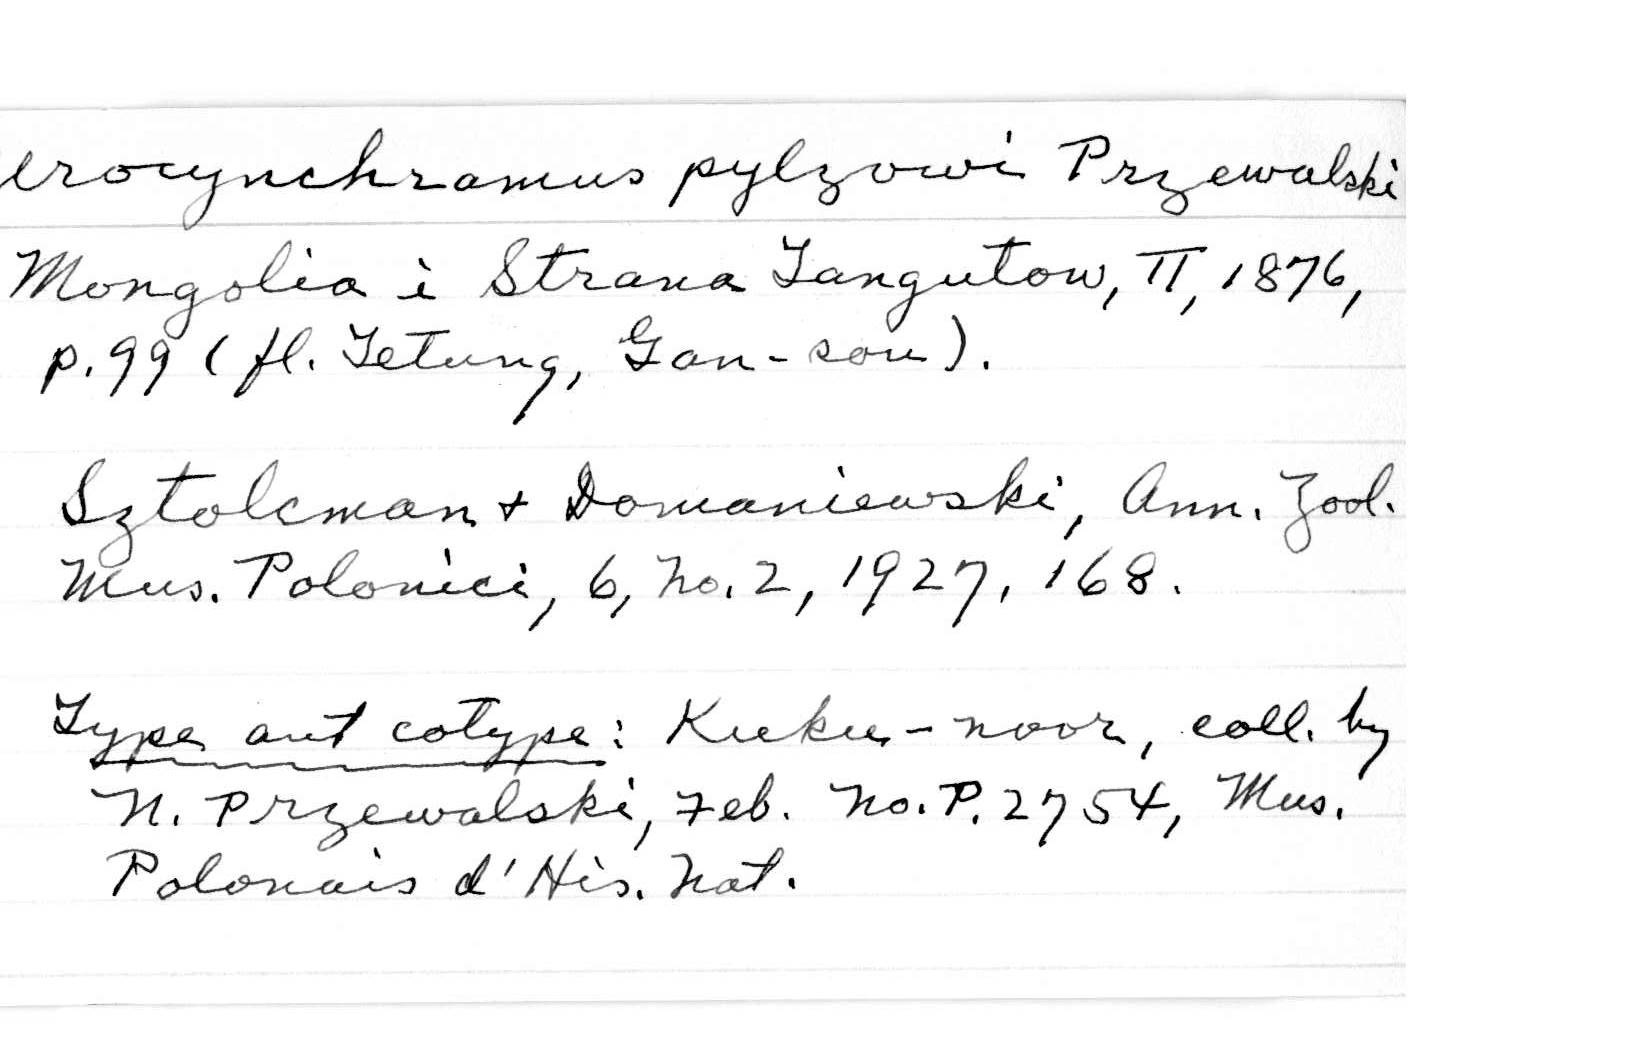 erocynchramus pylzowi Przewalski
Mongolia i Strana Tangutow, II, 1876,
p. 99 (fl. Tetung, Gan-sou).
Sztolcman + Domaniewski, Ann. Zool.
Mus. Polonici, 6, No. 2, 1927, 168.
Type aut cotype: Kuku-noor, coll. by
N. Przewalski, Feb. No. P. 2754, Mus.
Polonais d'His. Nat.